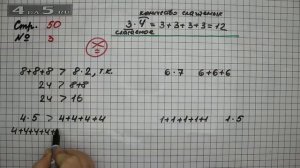 4A5.RU
количество слагаемых
Стр. 50
3·4 = 3+3+3+3=12
№ 3
слагаемое
8+8+8 > 8·2, т.к.
6·7 6+6+6
24 > 8+8
24 > 16
4·5 > 4+4+4+4
1+1+1+1+1 1·5
4+4+4+4+